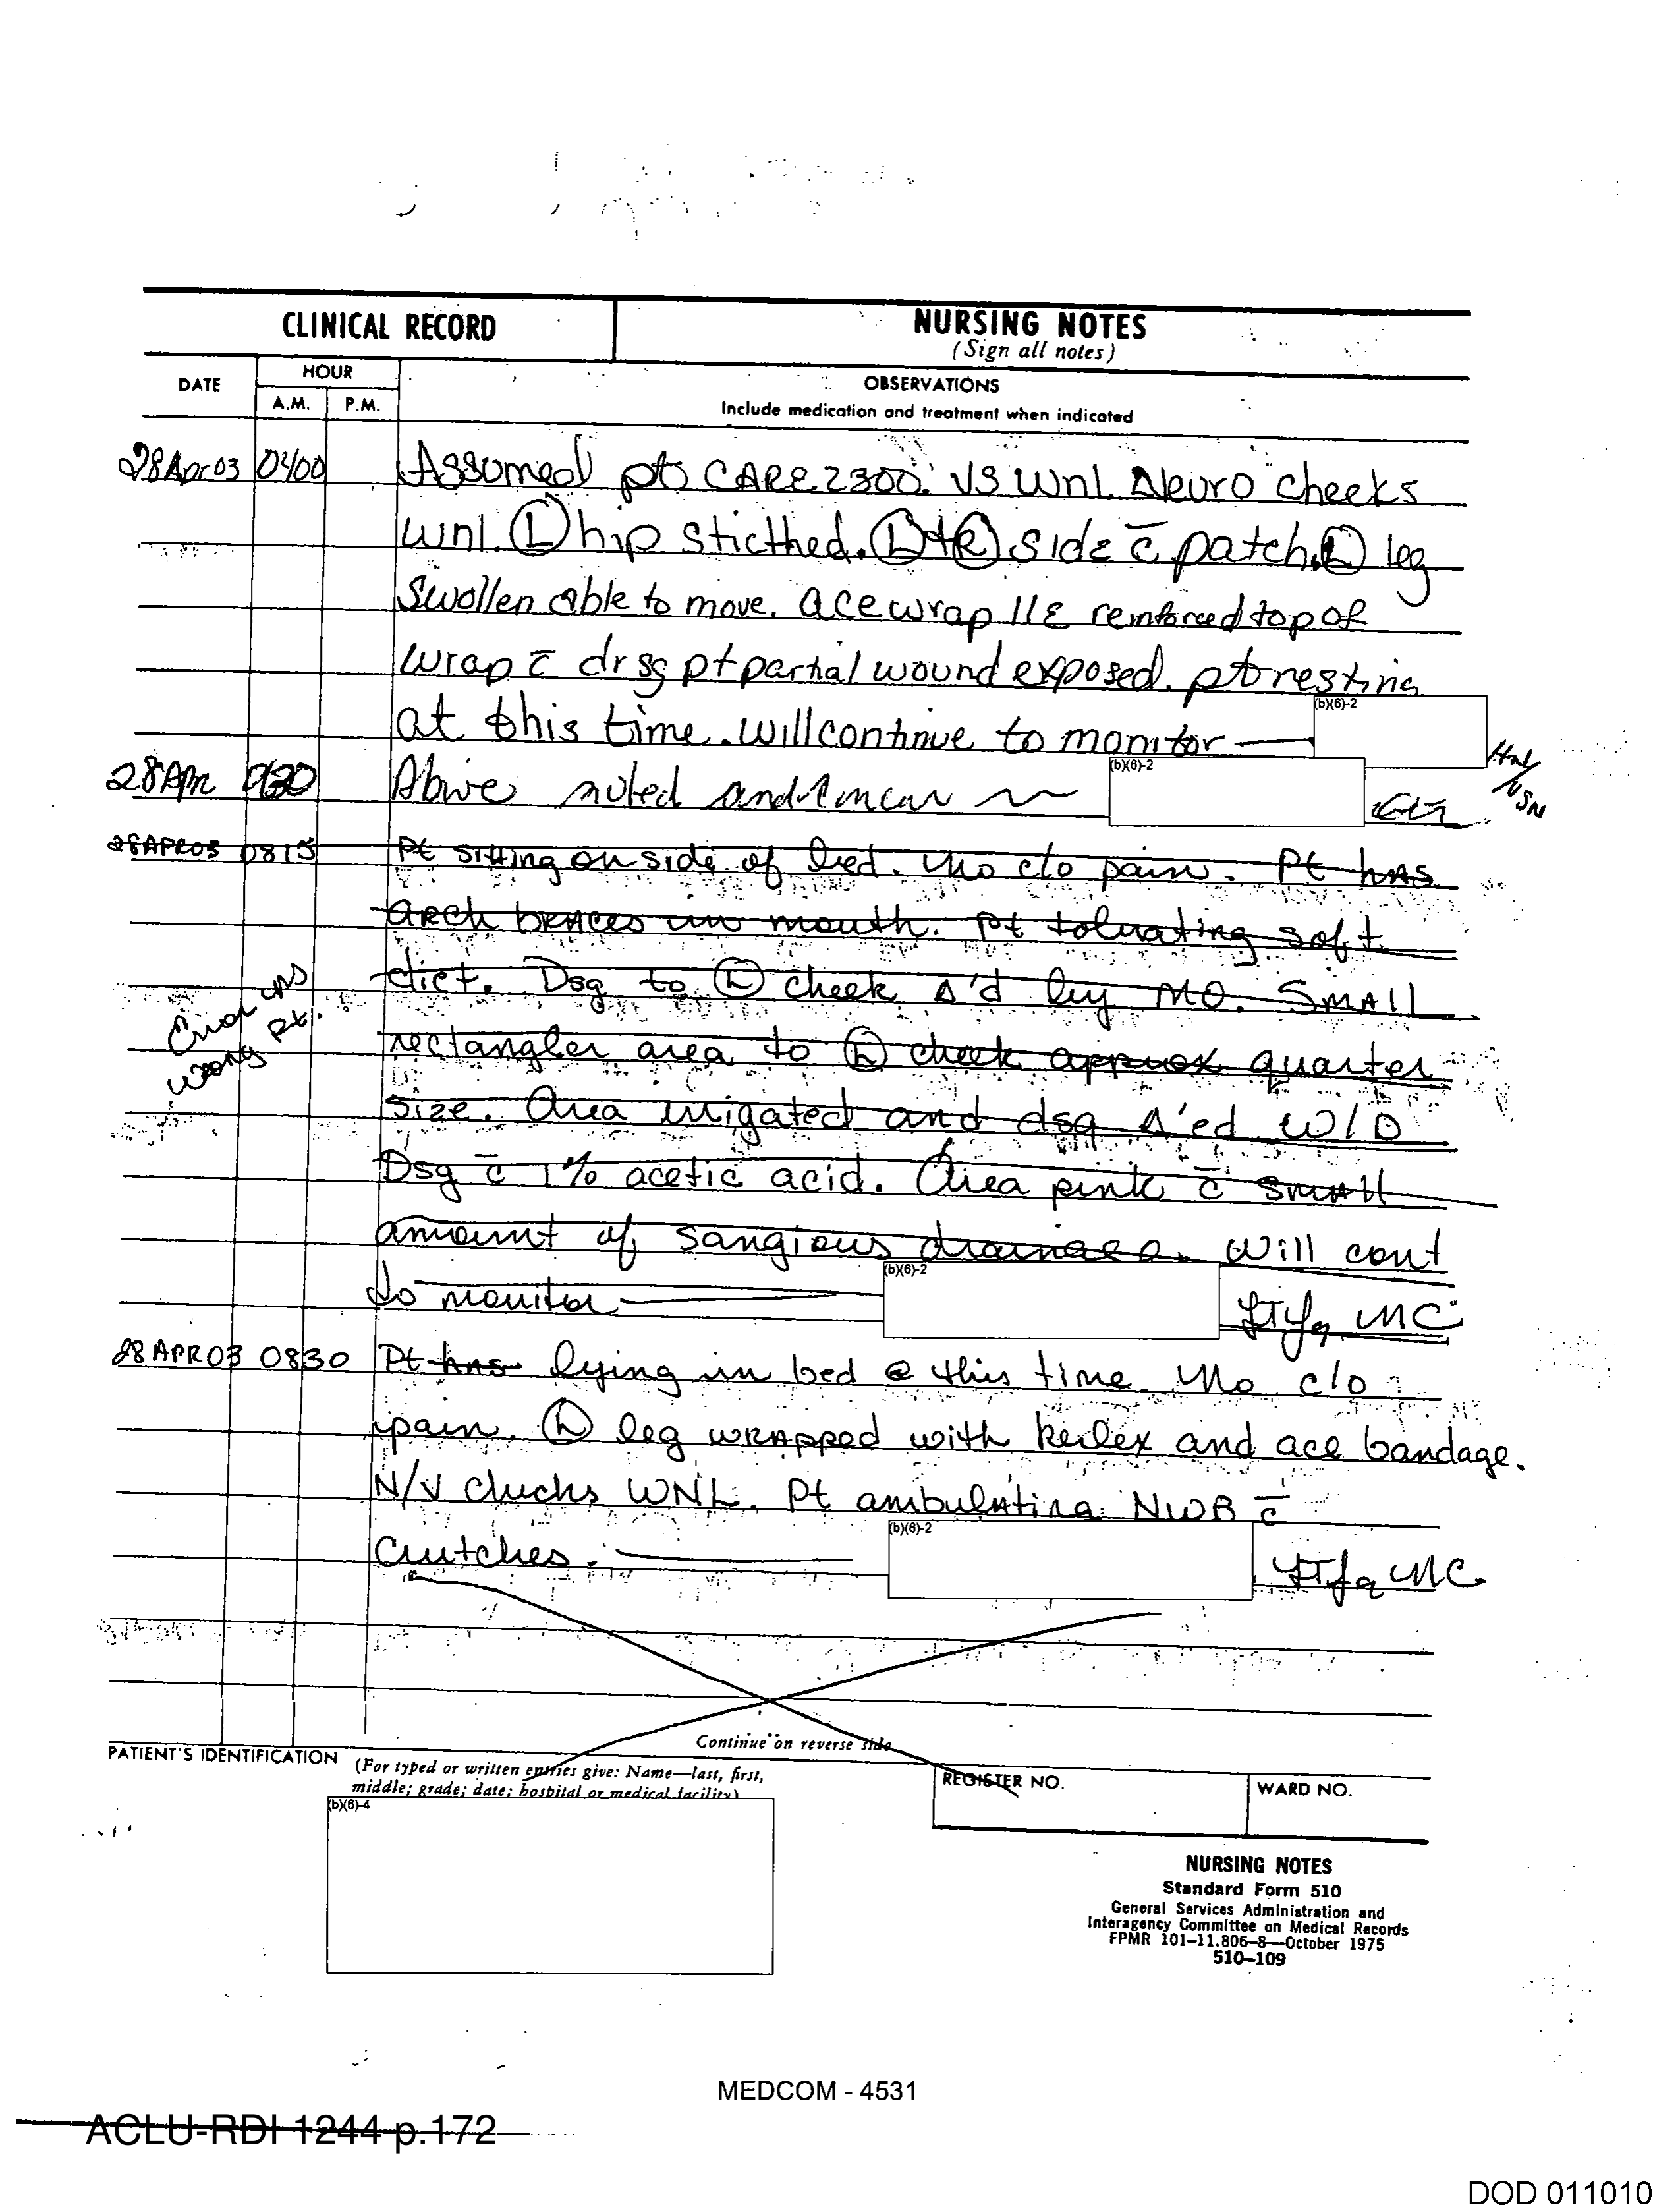 CLINICAL RECORD
NURSING NOTES
(Sign all notes)
DATE
HOUR
A.M.
P.M.
OBSERVATIONS
Include medication and treatment when indicated
28Apr03 0400 Assumed pt CARE 2300. VS Wnl. Neuro checks
wnl. (L) hip sticthed. (L)+(R) side c̄ patch. (L) leg
Swollen able to move. ace wrap reinforced top of
wrap c̄ drsg pt partial wound exposed. pt resting
at this time. will continue to monitor
(b)(6)-2
28Apr Above noted and concur
(b)(6)-2
28APR03 0815 Pt sitting on side of bed. No c/o pain. Pt has
arch braces in mouth. Pt toluating soft
diet. Dsg to (L) cheek Δ'd by MO. Small
Error
wrong pt.
rectangler area to (L) cheek approx quarter
size. Area irrigated and dsg Δ'ed W/D
Dsg c̄ 1% acetic acid. Area pink c̄ small
amount of sangious drainage. Will cont
to monitor
(b)(6)-2
NC
28APR03 0830 Pt has lying in bed @ this time. No c/o
pain. (L) leg wrapped with kerlex and ace bandage.
N/V checks WNL. Pt ambulating NWB c̄
Crutches.
(b)(6)-2
NC
Continue on reverse side
PATIENT'S IDENTIFICATION (For typed or written entries give: Name—last, first,
middle; grade; date; hospital or medical facility)
(b)(6)-4
REGISTER NO.
WARD NO.
NURSING NOTES
Standard Form 510
General Services Administration and
Interagency Committee on Medical Records
FPMR 101–11.806–8—October 1975
510–109
MEDCOM - 4531
ACLU-RDI 1244 p.172
DOD 011010